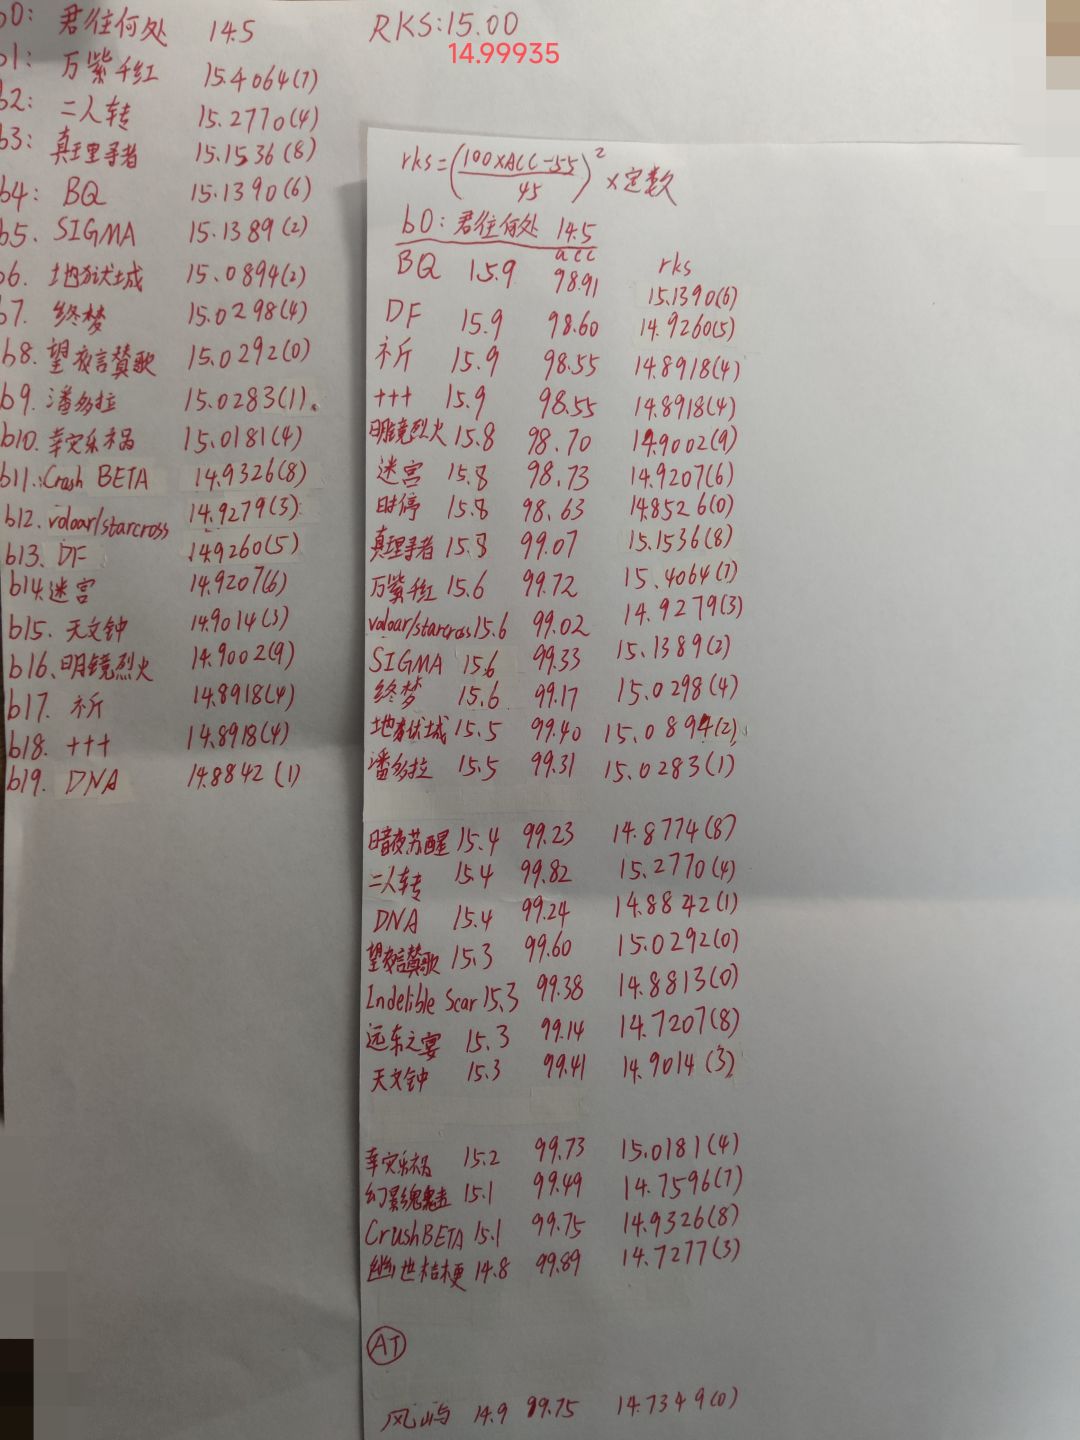 b0: 君往何处 14.5
b1: 万紫千红 15.4064(7)
b2: 二人转 15.2770(4)
b3: 真理寻者 15.1536(8)
b4: BQ 15.1390(6)
b5. SIGMA 15.1389(2)
b6. 地狱城 15.0894(2)
b7. 终梦 15.0298(4)
b8. 望夜言赞歌 15.0292(0)
b9. 潘多拉 15.0283(1).
b10. 幸灾乐祸 15.0181(4)
b11.:Crash BETA 14.9326(8)
b12. voloar/starcross 14.9279(3)
b13. DF 14.9260(5)
b14.迷宫 14.9207(6)
b15. 天文钟 14.9014(3)
b16.明镜烈火 14.9002(9)
b17. 祈 14.8918(4)
b18. +++ 14.8918(4)
b19. DNA 14.8842(1)
RKS:15.00
14.99935
rks=((100×ACC-55)/45)²×定数
b0:君往何处 14.5
acc rks
BQ 15.9 98.91 15.1390(6)
DF 15.9 98.60 14.9260(5)
祈 15.9 98.55 14.8918(4)
+++ 15.9 98.55 14.8918(4)
明镜烈火 15.8 98.70 14.9002(9)
迷宫 15.8 98.73 14.9207(6)
时停 15.8 98.63 14.8526(0)
真理寻者 15.8 99.07 15.1536(8)
万紫千红 15.6 99.72 15.4064(7)
voloar/starcross 15.6 99.02 14.9279(3)
SIGMA 15.6 99.33 15.1389(2)
终梦 15.6 99.17 15.0298(4)
地狱城 15.5 99.40 15.0894(2)
潘多拉 15.5 99.31 15.0283(1)
暗夜苏醒 15.4 99.23 14.8774(8)
二人转 15.4 99.82 15.2770(4)
DNA 15.4 99.24 14.8842(1)
望夜言赞歌 15.3 99.60 15.0292(0)
Indelible Scar 15.3 99.38 14.8813(0)
远东之宴 15.3 99.14 14.7207(8)
天文钟 15.3 99.41 14.9014(3)
幸灾乐祸 15.2 99.73 15.0181(4)
幻影魑魅 15.1 99.49 14.7596(7)
CrushBETA 15.1 99.75 14.9326(8)
幽世桔梗 14.8 99.89 14.7277(3)
AT
风屿 14.9 99.75 14.7349(0)